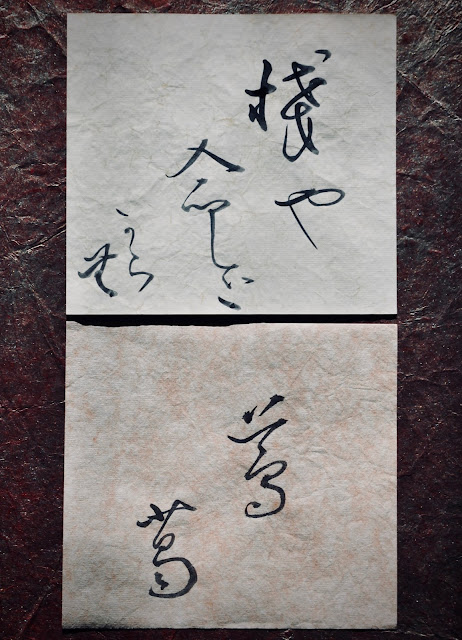 桟や
命を
からむ
蔦
葛